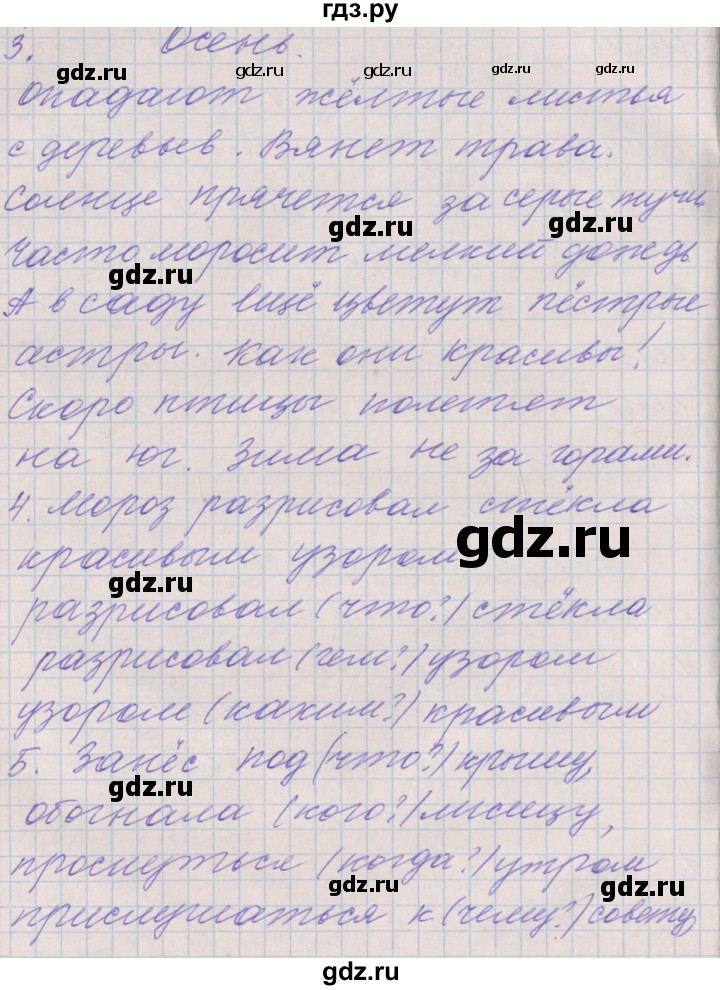 гдз.ру
3. Осень.
gdz.ru gdz.ru
Опадают жёлтые листья
с деревьев. Вянет трава.
gdz.ru gdz.ru
Солнце прячется за серые тучи
gdz.ru
Часто моросит мелкий дождь
gdz.ru
А в саду ещё цветут пёстрые
gdz.ru
астры. Как они красивы!
Скоро птицы полетят
gdz.ru
на юг. Зима не за горами.
4. Мороз разрисовал стёкла
gdz.ru
красивым узором
gdz.ru
разрисовал (что?) стёкла
разрисовал (чем?) узором
узором (каким?) красивым
gdz.ru
5. Занёс под (что?) крышу,
gdz.ru
обогнала (кого?) лисицу,
проснуться (когда?) утром
gdz.ru gdz.ru
прислушаться к (чему?) совету
gdz.ru